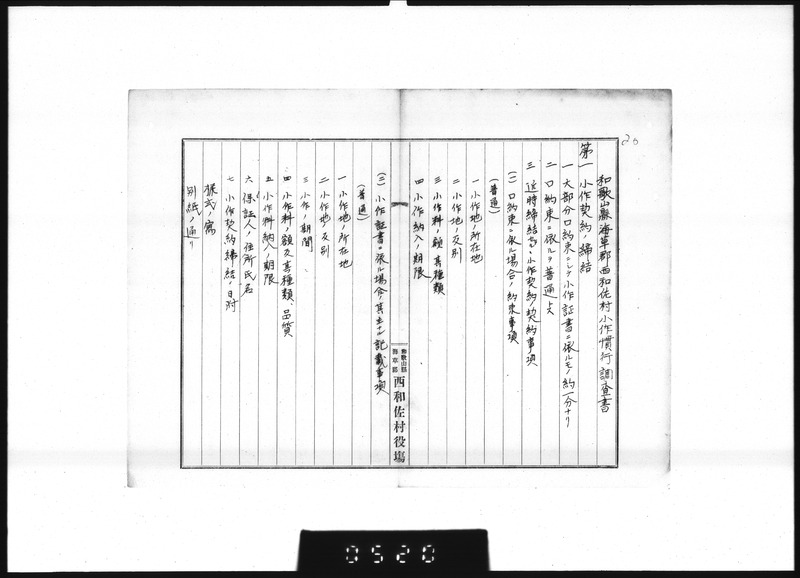 20
和歌山縣海草郡西和佐村小作慣行調査書
第一 小作契約ノ締結
一 大部分口約束ニシテ小作証書ニ依ルモノ約一分ナリ
二 口約束ニ依ルヲ普通トス
三 近時締結スル小作契約ノ契約事項
(一) 口約束ニ依ル場合ノ約束事項
(普通)
一 小作地ノ所在地
二 小作地ノ反別
三 小作料ノ額 其種類
四 小作納入ノ期限
和歌山縣海草郡 西和佐村役場
(二) 小作証書ニ依ル場合ノ其主ナル記載事項
(普通)
一 小作地ノ所在地
二 小作地ノ反別
三 小作ノ期間
四 小作料ノ額及其種類、品質
五 小作料納入ノ期限
六 保証人ノ住所氏名
七 小作契約締結ノ日附
様式ノ寫
別紙ノ通リ
0520